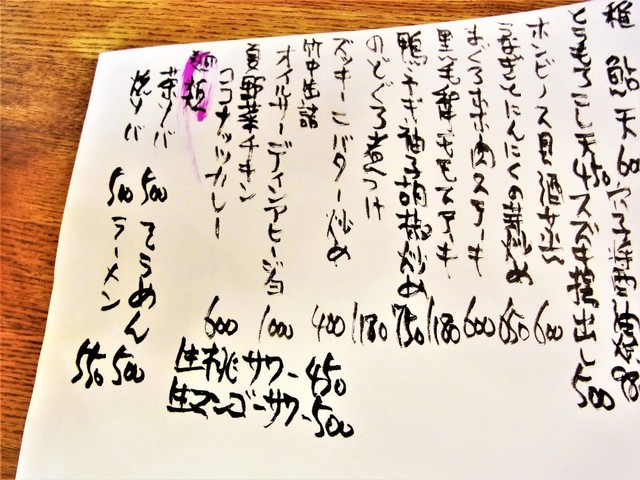 稚鮎天 600 穴子
とうもろこし天 450 スズキ揚出し 500
ホンビノス貝酒蒸し 600
うなぎとにんにくの芽炒め 650
まぐろホホ肉ステーキ 600
黒毛和牛モモステーキ 1180
鴨ネギ柚子胡椒炒め 750
のどぐろ煮つけ 1180
ズッキーニバター炒め 400
竹中缶詰
オイルサーディンアヒージョ 1000
夏野菜チキン
ココナッツカレー 600
麺類
茶ソバ 500 そうめん 500
焼ソバ 500 ラーメン 550
生桃サワー 450
生マンゴーサワー 500